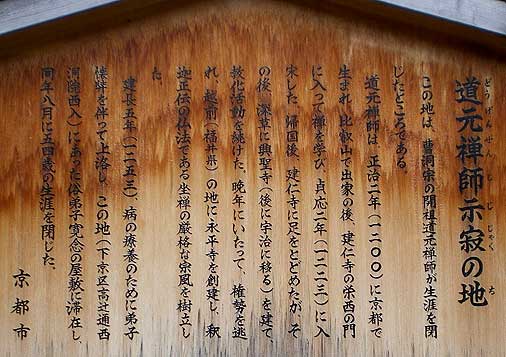 道元禅師示寂の地
どうげんぜんじじじゃくち
この地は、曹洞宗の開祖道元禅師が生涯を閉
じたところである。
道元禅師は、正治二年(一二〇〇)に京都で
生まれ、比叡山で出家の後、建仁寺の栄西の門
に入って禅を学び、貞応二年(一二二三)に入
宋した。帰国後、建仁寺に足をとどめたが、そ
の後、深草に興聖寺(後に宇治に移る)を建て、
教化活動を続けた。晩年にいたって、権勢を逃
れ、越前(福井県)の地に永平寺を創建し、釈
迦正伝の仏法である坐禅の厳格な宗風を樹立し
た。
建長五年(一二五三)、病の療養のために弟子
懐弉を伴って上洛し、この地(下京区高辻通西
洞院西入)にあった俗弟子覚念の屋敷に滞在し、
同年八月に五四歳の生涯を閉じた。
京都市